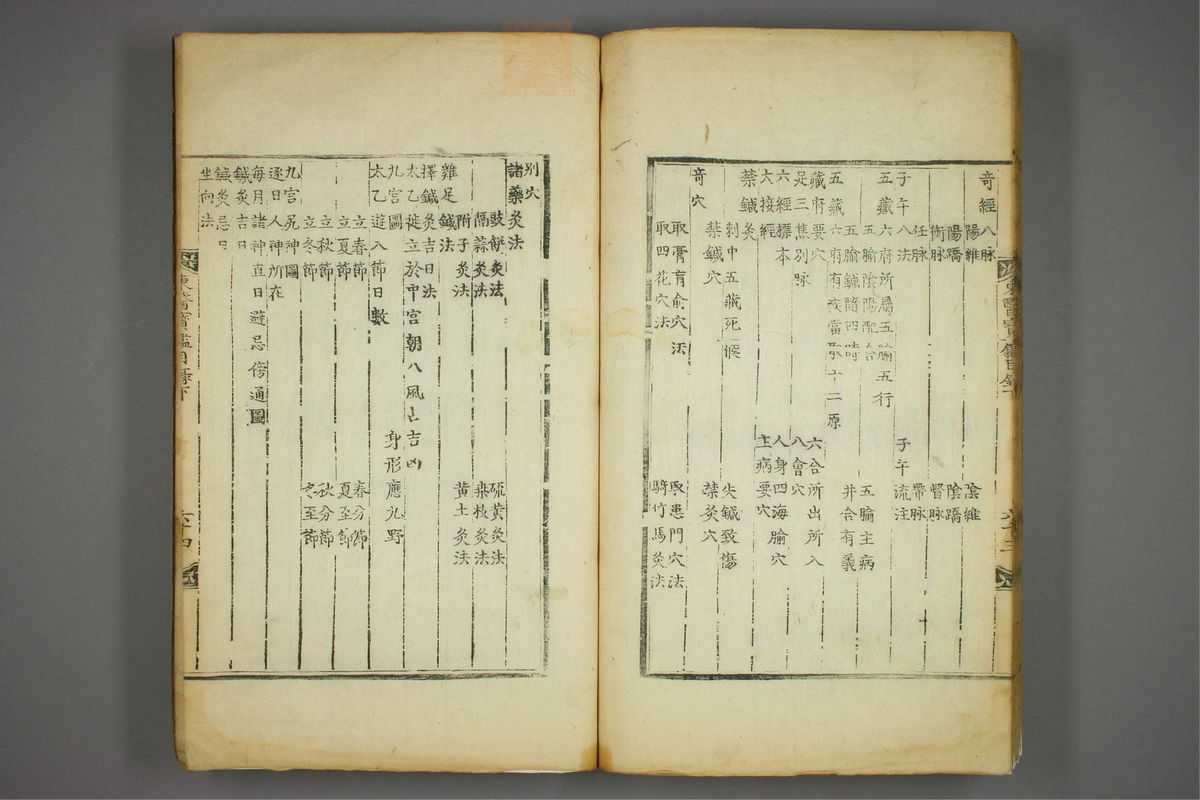 奇經八脉
陽維 陰維
陽蹻 陰蹻
衝脉 督脉
任脉 帶脉
子午八法 子午流注
五藏六府所屬五腧五行
五腧陰陽配合 五腧主病
五腧鍼隨四時 井合有義
五藏六府有疾當取十二原
藏府要穴 六合所出所入
足三焦別脉 八會穴
六經標本 人身四海腧穴
大接經 主病要穴
禁鍼灸
刺中五藏死候 失鍼致傷
禁鍼穴 禁灸穴
奇穴
取膏肓俞穴法 取患門穴法
取四花穴法 騎竹馬灸法
東醫寶鑑目錄下
別穴
諸藥灸法
豉餠灸法 硫黄灸法
隔蒜灸法 桑枝灸法
附子灸法 黄土灸法
雞足鍼法
擇鍼灸吉日法
太乙徙立於中宮朝八風占吉凶
九宮圖 身形應九野
太乙遊八節日數
立春節 春分節
立夏節 夏至節
立秋節 秋分節
立冬節 冬至節
九宮尻神圖
逐日人神所在
每月諸神直日避忌傍通圖
鍼灸吉日
鍼灸忌日
坐向法
東醫寶鑑目錄下
六十四